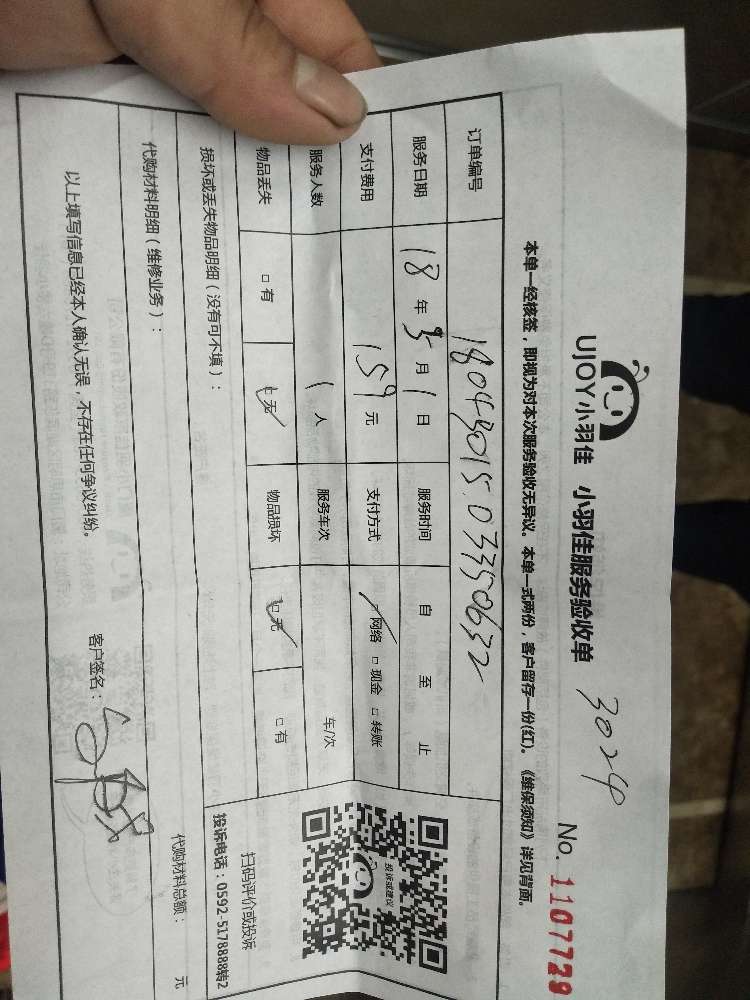 UJOY小羽佳 小羽佳服务验收单 3024
No. 1107729
本单一经核签,即视为对本次服务验收无异议。本单一式两份,客户留存一份(红)。《维保须知》详见背面。
订单编号 18043015.03350632
服务日期 18年5月1日 服务时间 自 至 止
支付费用 159元 支付方式 □网络 □现金 □转账
服务人数 1人 服务车次 车/次
物品丢失 □有 □无 物品损坏 □无 □有
投诉或建议
扫码评价或投诉
投诉电话:0592-5178888转2
损坏或丢失物品明细(没有可不填):
代购材料明细(维修业务): 代购材料总额: 元
以上填写信息已经本人确认无误,不存在任何争议纠纷。 客户签名: